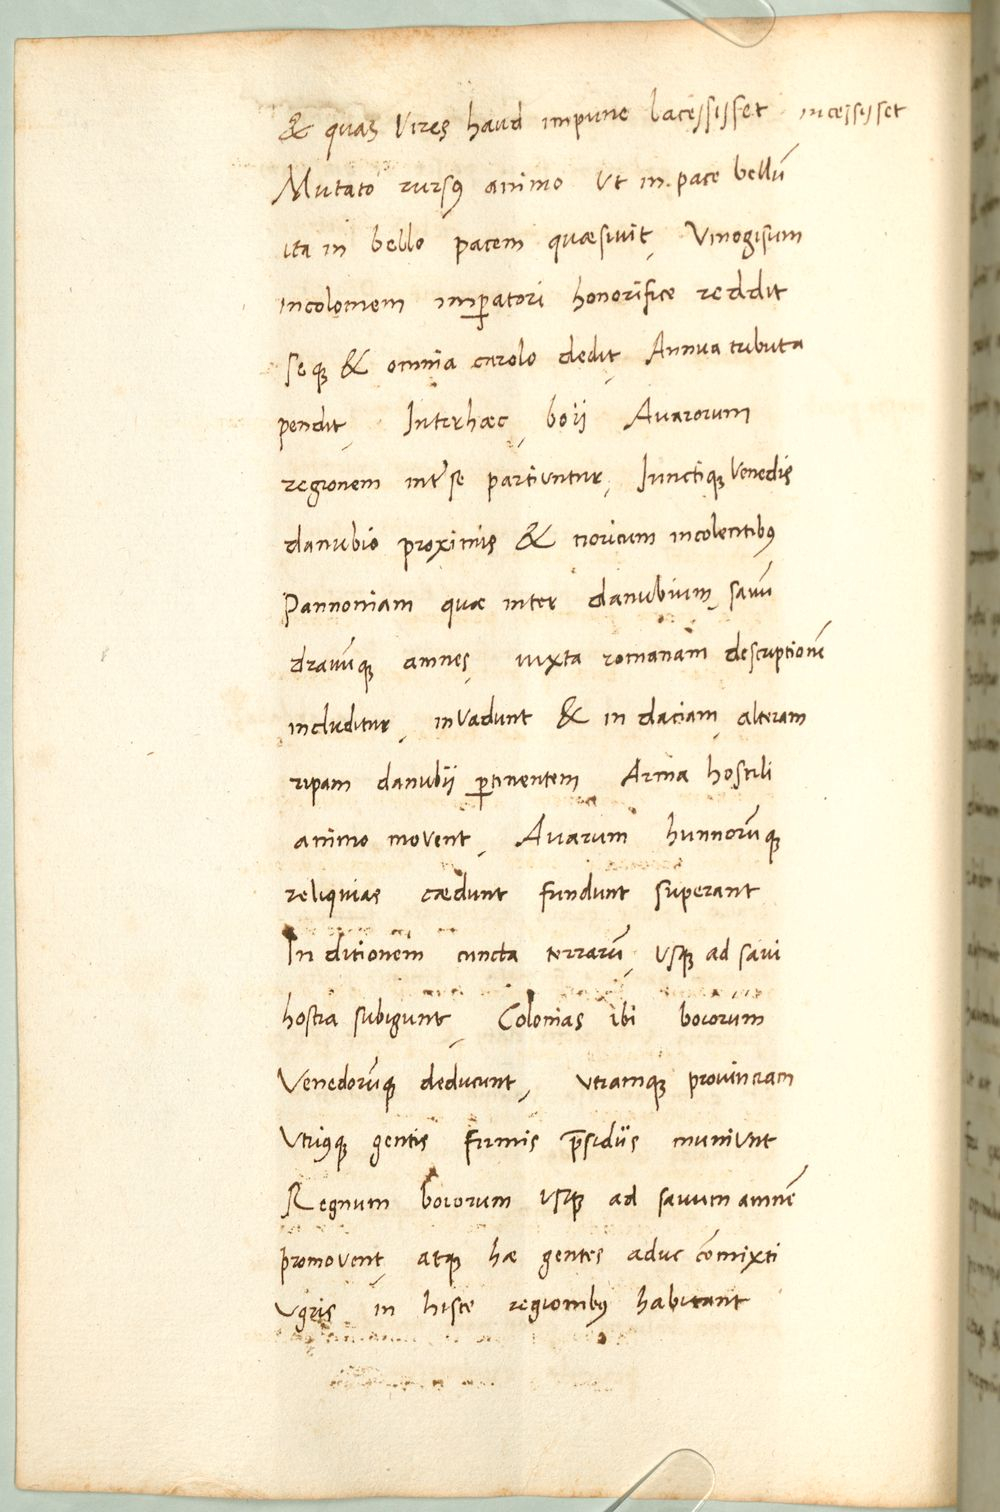 & quas Vires haud impune lacessisset incessisset
Mutato rursꝰ animo Ut in. pace bellū
ita in bello pacem quæsivit, Vinogisum
incolomem imꝑatori honorifice reddit
se qꝫ & omnia carolo dedit, Annua tributa
pendit, Interhæc, boij Avarorum
regionem inter se partiuntur, Junctiqꝫ Venedis
danubio proximis & noricum incolentibꝰ
Pannoniam quæ inter danubium, savū
dravūqꝫ amnes, iuxta romanam descriptionē
includitur, inVadunt & in daciam, alteram
ripam danubii ꝑtinentem, Arma hostili
animo movent, Avarum hunnorūqꝫ
reliquias cædunt fundunt superant
In ditionem cuncta terrarū, Usqꝫ ad savi
hostia subigunt, Colonias ibi boiorum
Venedorūqꝫ deducunt, Utramqꝫ provinciam
Utriꝰqꝫ gentis firmis p̄sidiis muniUnt
Regnum boiorum Usqꝫ ad savum amnē
promovent, atqꝫ hæ gentes aduc cōmixti
Ugris in hisce regionibꝰ habitant